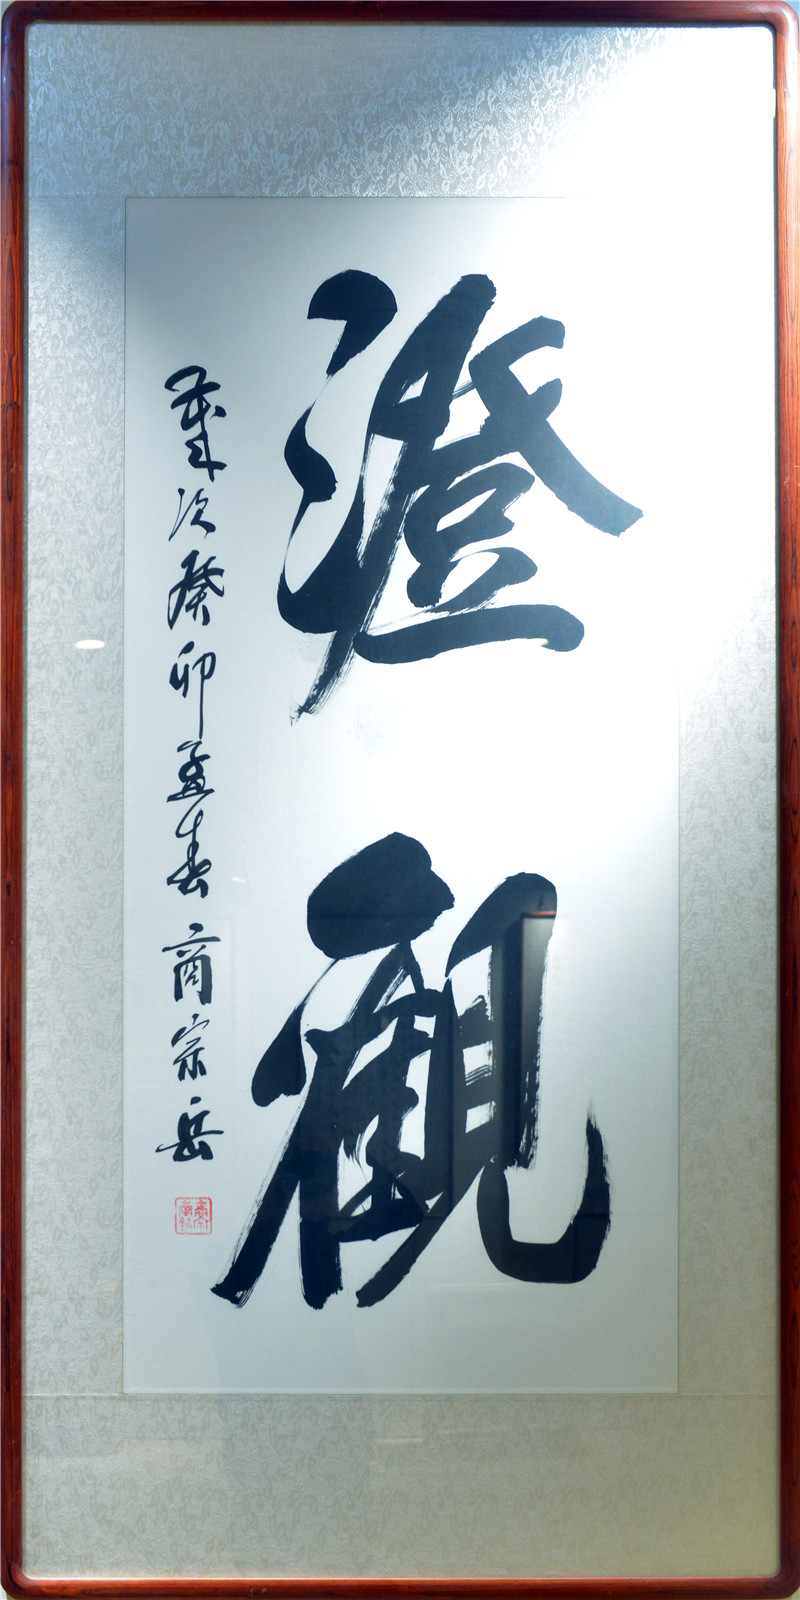 澄觀
歲次癸卯孟春 商宗岳